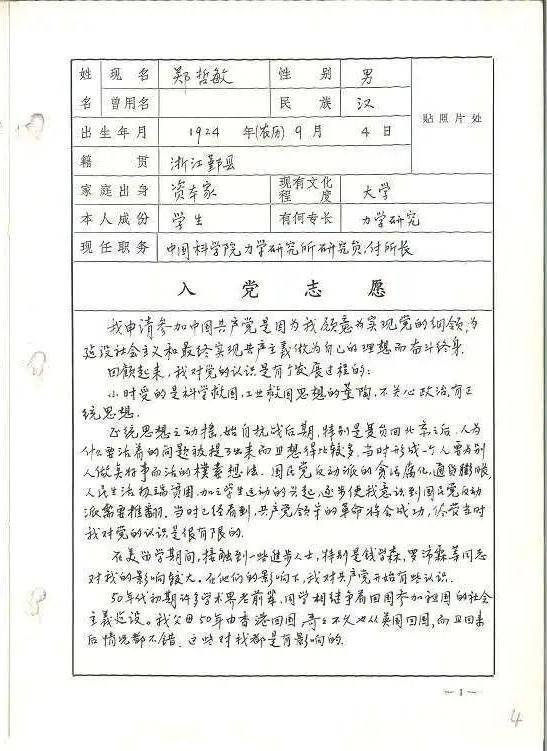 姓 现名 郑哲敏 性别 男
名 曾用名 民族 汉 贴照片处
出生年月 1924 年(农历) 9 月 4 日
籍贯 浙江鄞县
家庭出身 资本家 现有文化程度 大学
本人成份 学生 有何专长 力学研究
现任职务 中国科学院力学研究所研究员,付所长
入党志愿
我申请参加中国共产党是因为我愿意为实现党的纲领,为
建设社会主义和最终实现共产主义做为自己的理想而奋斗终身.
回顾起来,我对党的认识是有个发展过程的:
小时受的是科学救国,工业救国思想的熏陶,不关心政治,有正
统思想.
正统思想之动摇,始自抗战后期,特别是复员回北京之后.人为
什么要活着的问题被提出来而且想得比较多.当时形成一个人要为别
人做点好事而活的朴素想法.国民党反动派的贪污腐化,通货膨胀,
人民生活极端贫困,加之学生运动的兴起,逐步使我意识到国民党反动
派需要推翻.当时已经看到,共产党领导的革命将会成功,尽管当时
我对党的认识是很有限的.
在美留学期间,接触到一些进步人士,特别是钱学森,罗沛霖等同志
对我的影响较大.在他们的影响下,我对共产党开始有些认识.
50年代初期许多学术界老前辈,同学相继争着回国参加祖国的社会
主义建设。我父母50年由香港回国,哥哥不久也从英国回国,而且回来
后情况都不错.这些对我都是有影响的.
—1—
4